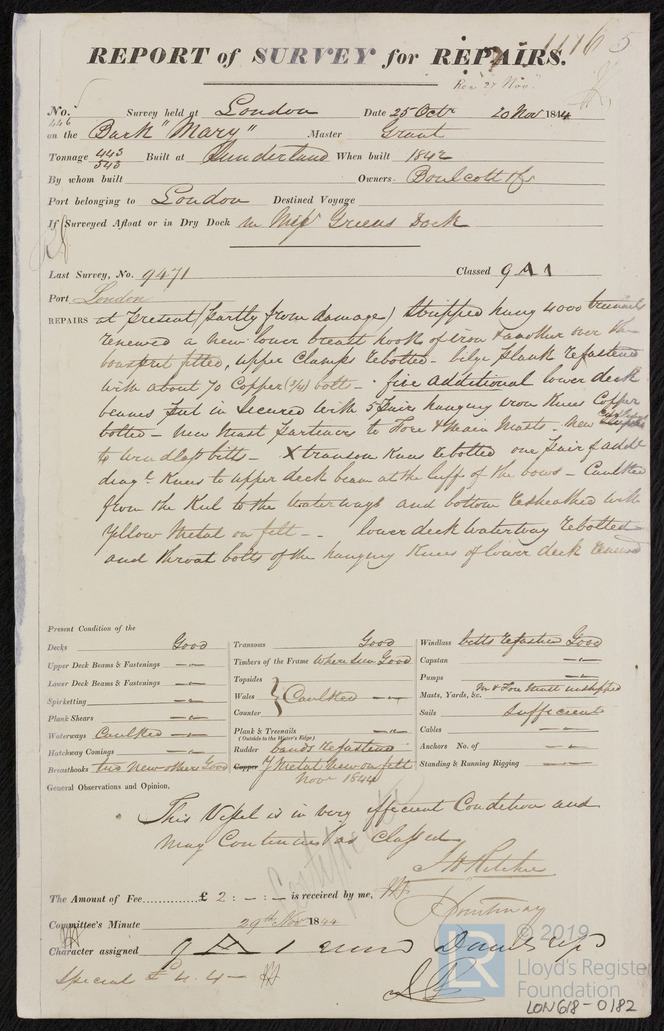 11165
REPORT of SURVEY for REPAIRS.
Rec 27 Nov
No. 446 Survey held at London Date 25 Octr 20 Nov 1844
on the Bark "Mary" Master Grant
Tonnage 443 543 Built at Sunderland When built 1842
By whom built Owners Boulcott &
Port belonging to London Destined Voyage
If Surveyed Afloat or in Dry Dock in Greens Dock
Last Survey, No. 9471 Classed 9 A 1
Port London
REPAIRS at present (partly from damage) Stripped 4000 treenails
renewed a new lower breast hook of iron & another over the
bowsprit fitted, upper Clamps rebolted - bilge plank refastened
with about 70 Copper (3/4) bolts - five additional lower deck
beams put in Secured with 5 pairs hanging iron Knees Copper
bolted - new Mast parteners to Fore & Main Masts. New
to windlass bitts - X transom Knees rebolted one pair of addl
diagl Knees to upper deck beam at the luff of the bows - Caulked
from the Keel to the Waterways and bottom resheathed with
Yellow Metal on felt - - lower deck waterway rebolted
and throat bolts of the hanging Knees of lower deck renewed
Present Condition of the
Decks Good
Upper Deck Beams & Fastenings — —
Lower Deck Beams & Fastenings — —
Spirketting — —
Plank Shears — —
Waterways Caulked — —
Hatchway Comings — —
Breasthooks two new others Good
Transoms Good
Timbers of the Frame where seen Good
Topsides
Wales Caulked — —
Counter
Plank & Treenails — —
(Outside to the Water's Edge)
Rudder bands refastened
Copper Y Metal New on felt
Novr 1844
Windlass bitts refastened Good
Capstan — —
Pumps — —
Masts, Yards, &c. M & Fore Mast unshipped
Sails Sufficient
Cables — —
Anchors No. of — —
Standing & Running Rigging — —
General Observations and Opinion,
This Vessel is in very efficient Condition and
may Continue as Classed
Certificate
The Amount of Fee £ 2 : - : - is received by me,
Committee's Minute 29th Novr 1844
Character assigned 9 A 1
Special £ 4. 4 -
© 2019
LR
Lloyd's Register
Foundation
LON618-0182